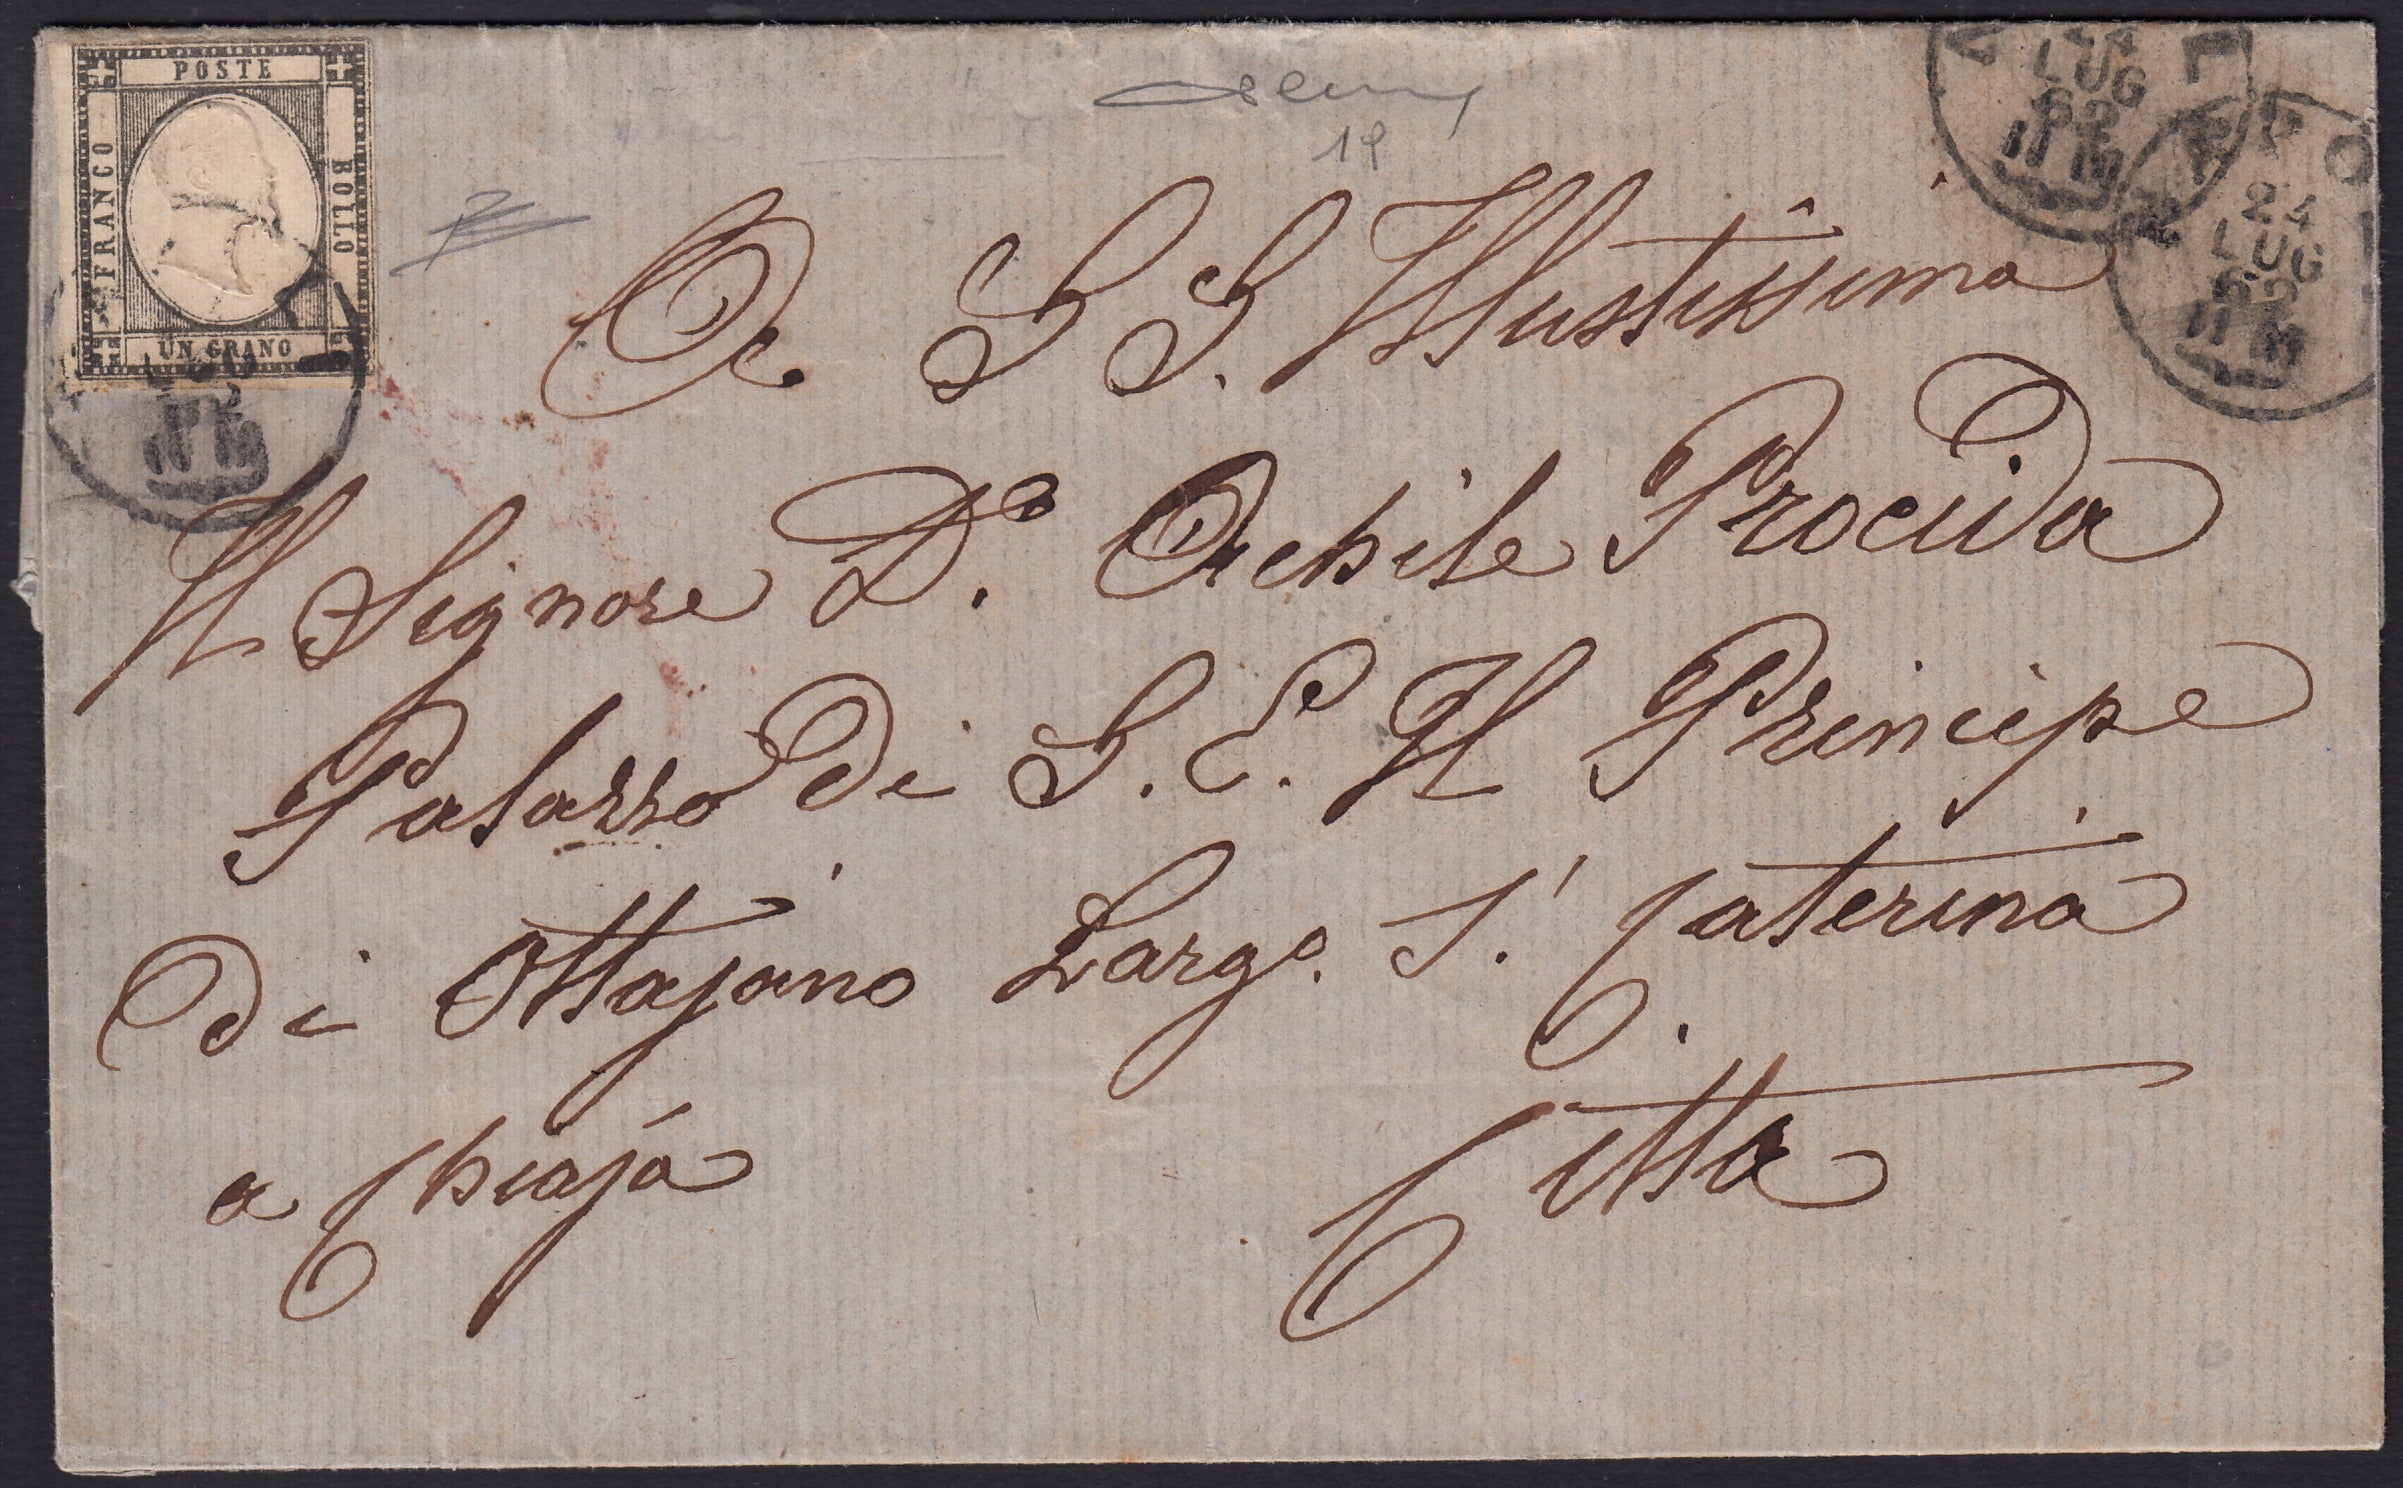 POSTE
FRANCO
BOLLO
UN GRANO
LUG
62
24
LUG
62
19
A S. S. Illustissima
Il Signore D.n Achile Procida
Palazzo di S. E. Il Principe
di Ottajano Largo S. Caterina
a Chiaja
Citta